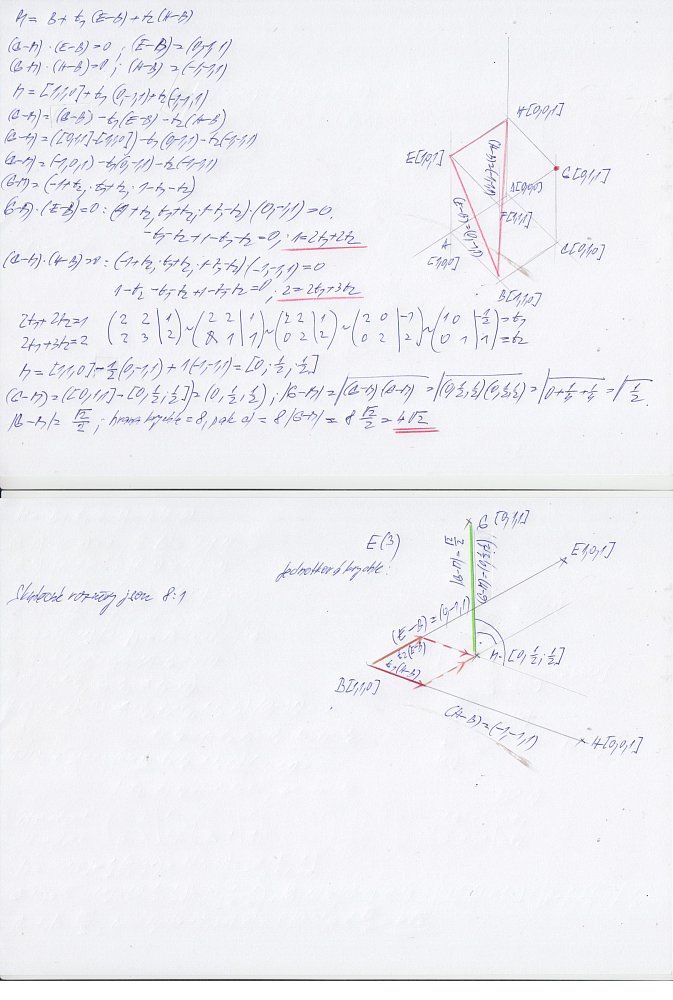 M = B + t₁(E-B) + t₂(H-B)
(G-M)·(E-B)=0 ; (E-B)=(0,-1,1)
(G-M)·(H-B)=0 ; (H-B)=(-1,-1,1)
M = [1,1,0] + t₁(0,-1,1) + t₂(-1,-1,1)
(G-M) = (G-B) - t₁(E-B) - t₂(H-B)
(G-M) = ([0,1,1]-[1,1,0]) - t₁(0,-1,1) - t₂(-1,-1,1)
(G-M) = (-1,0,1) - t₁(0,-1,1) - t₂(-1,-1,1)
(G-M) = (-1+t₂, t₁+t₂, 1-t₁-t₂)
(G-M)·(E-B)=0 : (-1+t₂, t₁+t₂, 1-t₁-t₂)·(0,-1,1)=0
-t₁-t₂+1-t₁-t₂=0 ; 1=2t₁+2t₂
(G-M)·(H-B)=0 : (-1+t₂, t₁+t₂, 1-t₁-t₂)(-1,-1,1)=0
1-t₂-t₁-t₂+1-t₁-t₂=0 ; 2=2t₁+3t₂
2t₁+2t₂=1 (2 2 | 1 ~ (2 2 | 1 ~ (2 2 | 1 ~ (2 0 | -1 ~ (1 0 | -1/2 = t₁
2t₁+3t₂=2 2 3 | 2) 0 1 | 1) 0 2 | 2) 0 2 | 2) 0 1 | 1) = t₂
M = [1,1,0] - 1/2(0,-1,1) + 1(-1,-1,1) = [0; 1/2; 1/2]
(G-M) = ([0,1,1]-[0,1/2,1/2]) = (0,1/2,1/2) ; |G-M| = √(G-M)(G-M) = √(0,1/2,1/2)(0,1/2,1/2) = √0+1/4+1/4 = √1/2
|G-M| = √2/2 ; hrana krychle = 8, pak d = 8|G-M| = 8 √2/2 = 4√2
H[0,0,1]
E[1,0,1]
G[0,1,1]
(H-B)=(-1,-1,1)
(E-B)=(0,-1,1)
D[0,0,0]
F[1,1,1]
A
[1,0,0]
C[0,1,0]
B[1,1,0]
E(3)
Jednotková krychle:
Skutečné rozměry jsou 8:1
G[0,1,1]
|G-M| = √2/2
(G-M)=(0,1/2,1/2)
E[1,0,1]
(E-B)=(0,-1,1)
t₂(E-B)
t₁(H-B)
M=[0,1/2;1/2]
B[1,1,0]
(H-B)=(-1,-1,1)
H[0,0,1]